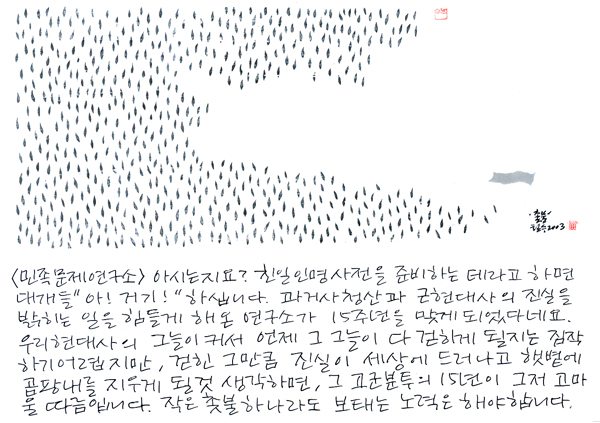 촛불
철수2003
<민족문제연구소> 아시는지요? 친일인명사전을 준비하는 데라고 하면
대개들 "아! 거기!" 하십니다. 과거사청산과 근현대사의 진실을
밝히는 일을 힘들게 해온 연구소가 15주년을 맞게 되었다네요.
우리현대사의 그늘이 커서 언제 그 그늘이 다 걷히게 될지는 짐작
하기어렵지만, 걷힌 그만큼 진실이 세상에 드러나고 햇볕에
곰팡내를 지우게 될것 생각하면, 그 고군분투의 15년이 그저 고마
울 따름입니다. 작은 촛불하나라도 보태는 노력은 해야합니다.